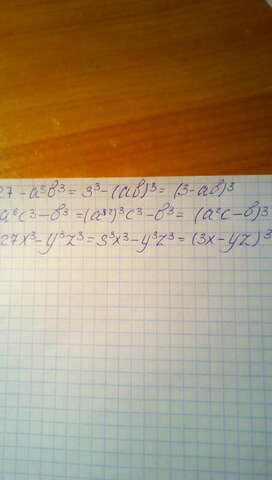 27 - a³b³ = 3³ - (ab)³ = (3 - ab)³
a⁶c³ - b³ = (a²)³c³ - b³ = (a²c - b)³
27x³ - y³z³ = 3³x³ - y³z³ = (3x - yz)³